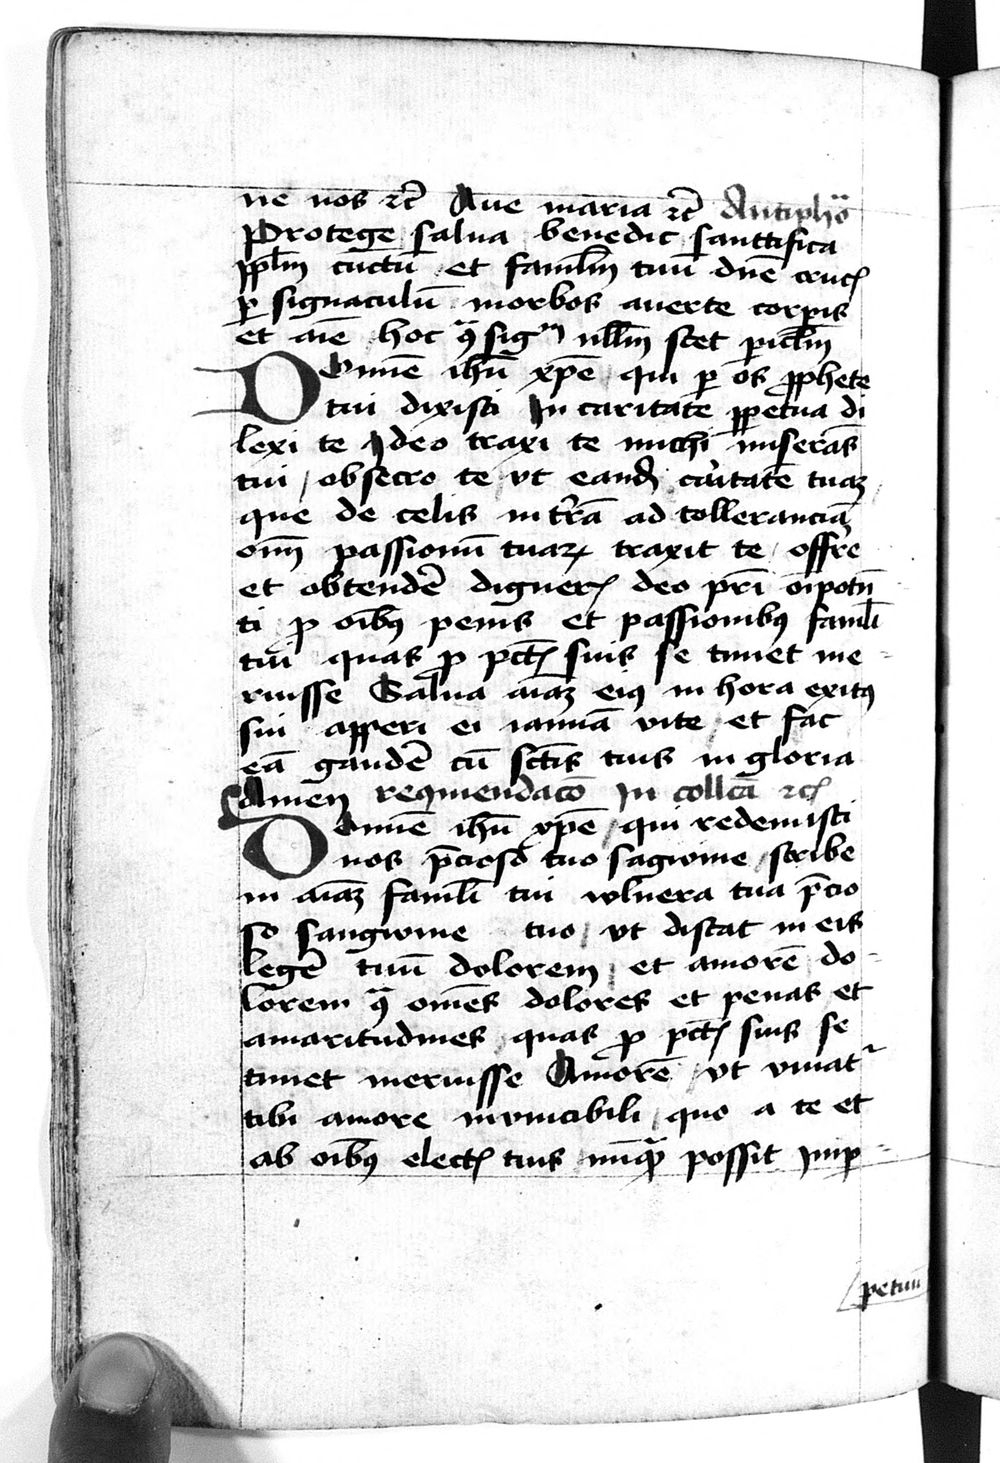 ne nos ⁊c̄ Aue maria ⁊c̄ Antipho᷑
Protege salua benedic santtifica
ppl̄m cūctū et faml̄m tuū dn̄e cruc̄
ꝑ signaculū morbos auerte corꝑis
et aīe hoc ꝯ͛ sigᵐ nll̄m stet picl̄m
Omine ihū xp̄e qui ꝑ os ꝓphete
tui dixisti In caritate ꝑpetua di
lexi te Ideo traxi te michi miserās
tui / obsecro te vt eand̄ cāitatē tuaȝ
que de celis in tr̄ā ad tolleranciā
oīm passionū tuaꝝ traxit te offr̄e
et obtendē̄ digner̄ deo pr̄i oīpotē
ti ꝓ oībꝰ penis et passionibꝰ famli
tui quas ꝓ pctī̄s suis se timet me-
ruisse Salua aīaȝ eiꝰ in hora exitꝰ
sui apperi ei ianuā vite et fac
eā gaudē̄ cū sctīs tuis in gloria
Amen requiendacō In collcā ⁊c̄
Omine ihū xp̄e qui redemisti
nos p̄cioso tuo sagwine / scribe
in aīaȝ famli tui wlnera tua p̄cio
so sangwine tuo / vt discat in eis
legē̄ tuū dolorem et amorē do-
lorem ꝯ͛ omēs dolores et penas et
amaritudines quas ꝓ pctī̄s suis se
timet meruisse Amorē vt viuat
tibi amore inuincibili / quo a te et
ab oībꝰ elect̄ tuis nūqᷓ possit imp
petuū